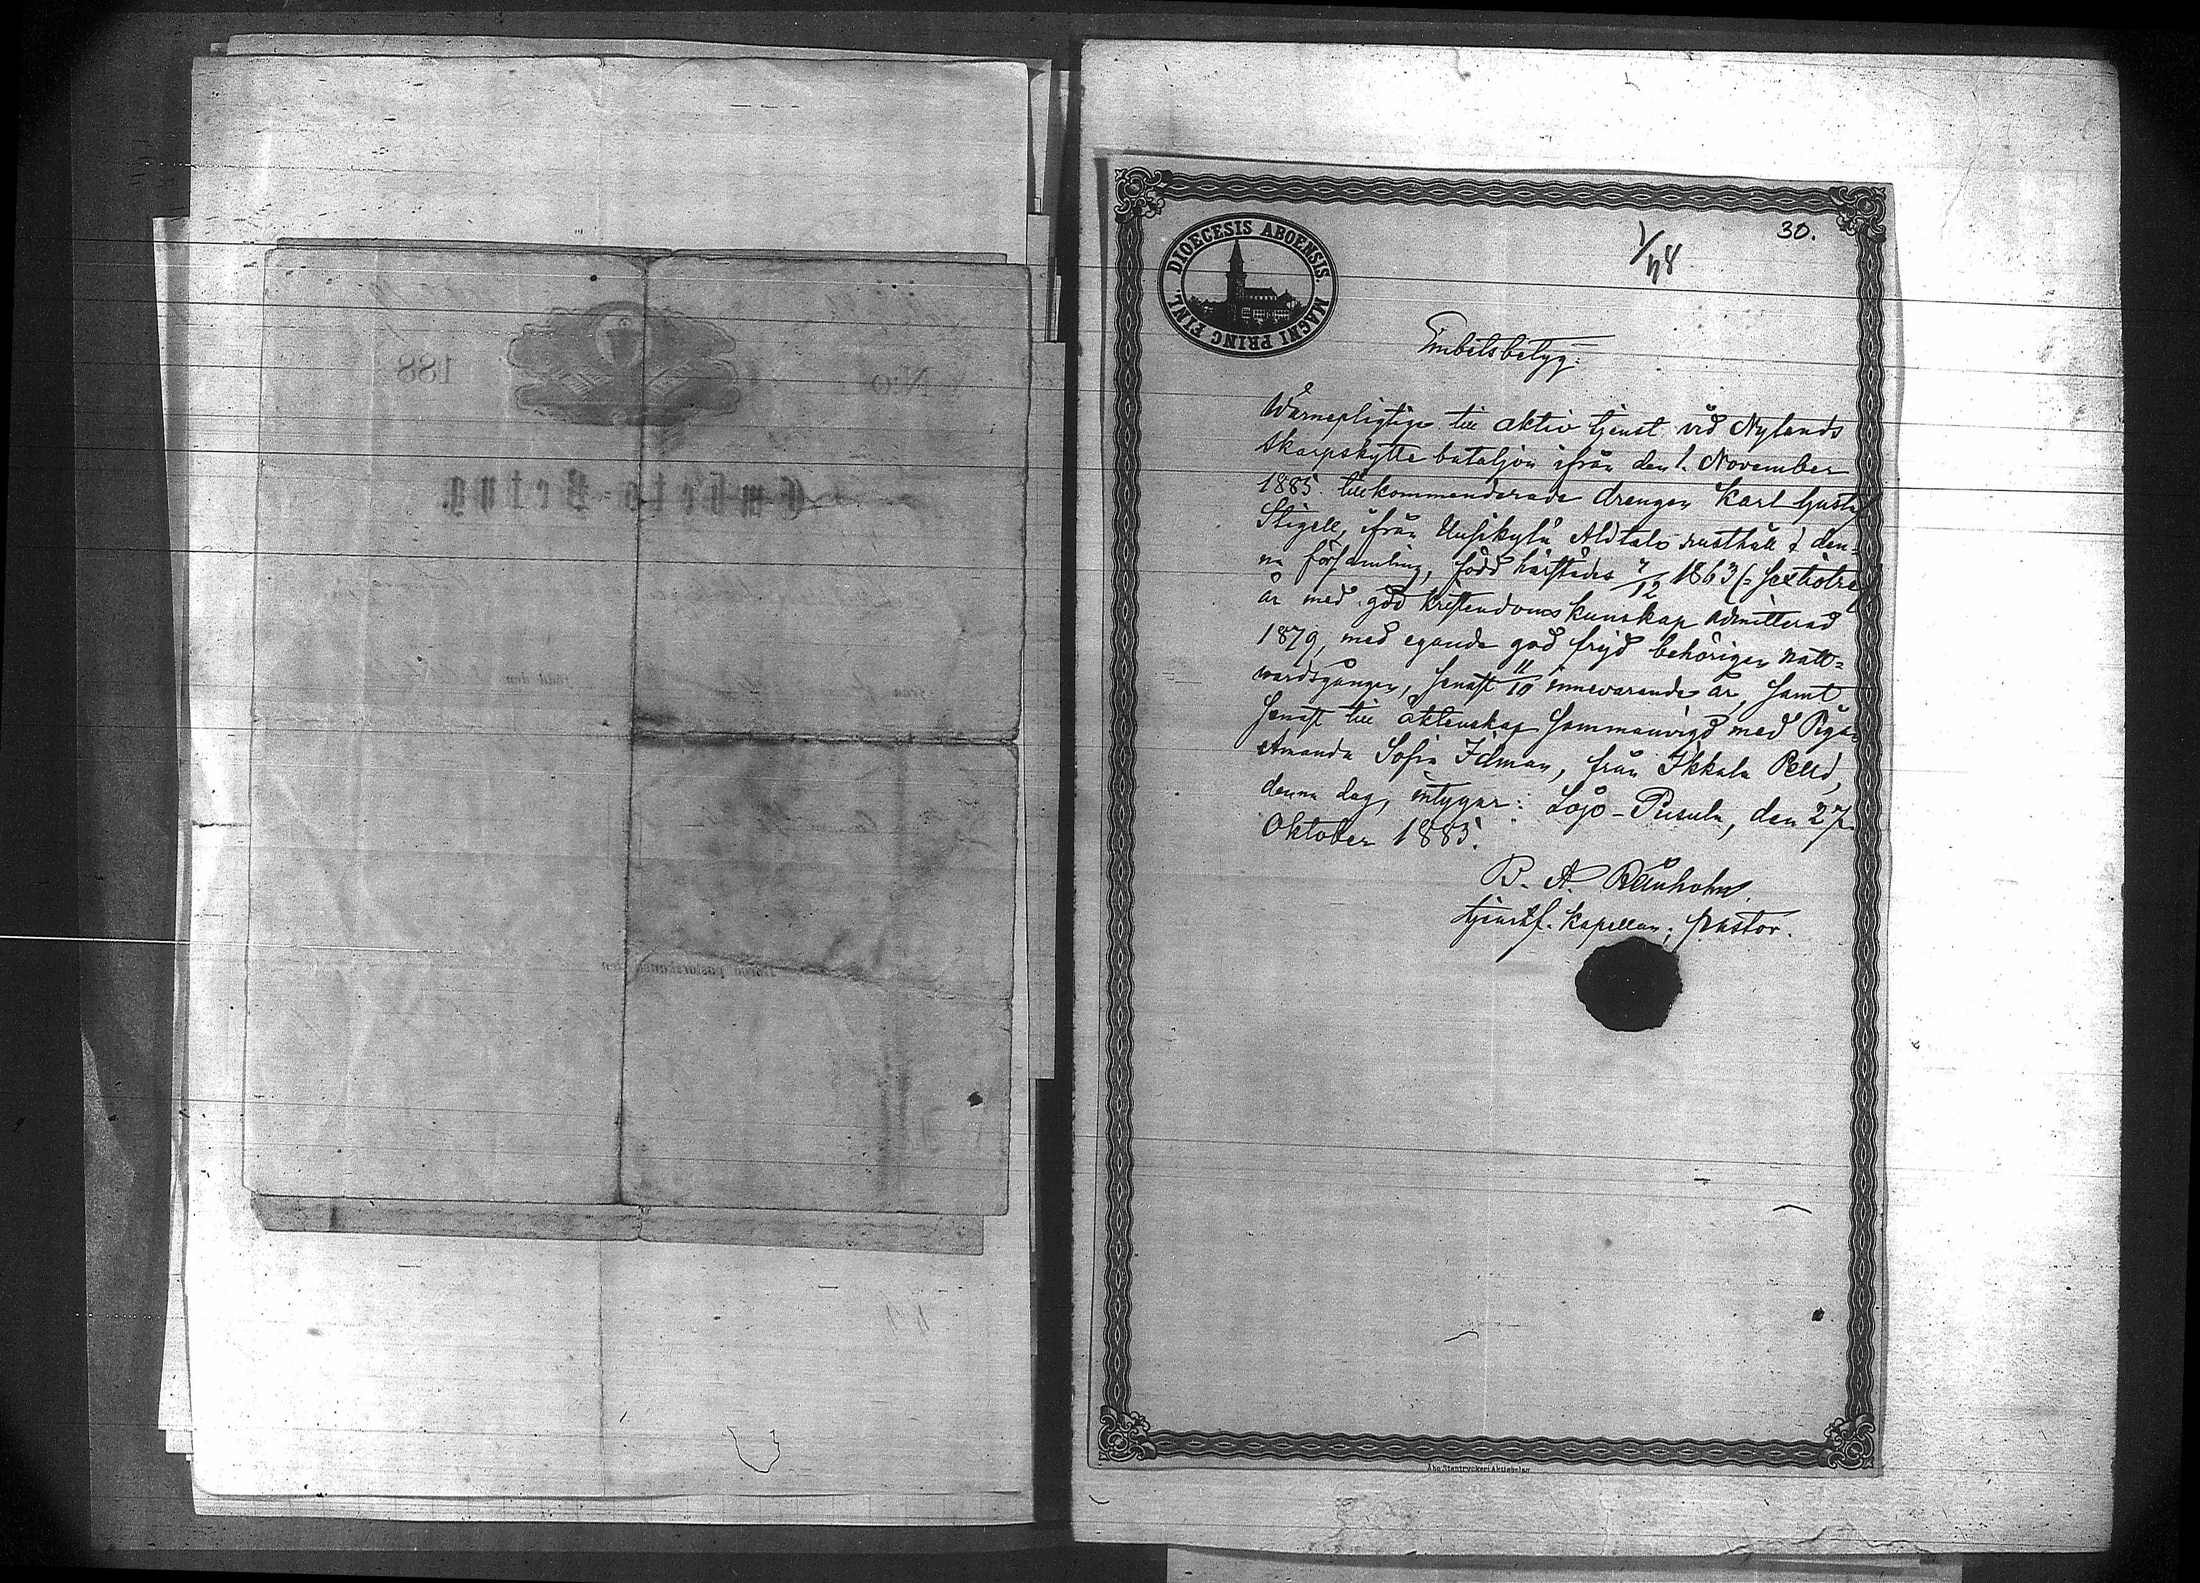 188
N:o
Embets-Betyg.
DIOECESIS ABOENSIS. MAGNI PRINC FINL.
1/48
30.
Embetsbetyg:
Wärnepligtige till aktiv tjenst vid Nylands
skarpskytte bataljon ifrån den 1. November
1885 tillkommenderade drengen Karl Gustaf
Stigell, ifrån Uusikylä Alitalo rusthåll i den-
na församling, född härstädes 7/12 1863 (= sextiotre)
år med god kristendomskunskap admitterad
1879, med egande god frejd behörigen natt-
wardsgången, senast 11/10 innevarande år, samt
senast till äktenskap sammanvigd med Pigan
Amanda Sofia Idman, från Ikkala
denna dag, intygar: Lojo-Pusula, den 27
Oktober 1885.
B. A.
tjenstf. kapellan, pastor.
Åbo Stentryckeri Aktiebolag